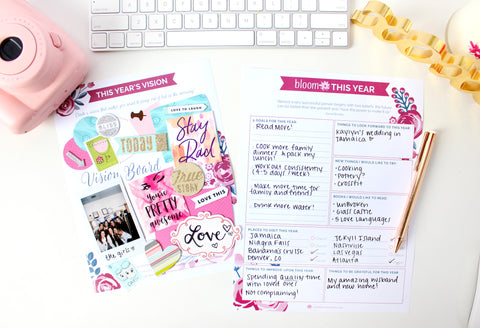 THIS YEAR'S VISION
LOVE TO LAUGH
BLISS
TODAY
Stay
Rad
Vision Board
TRUE
STORY
You're
PRETTY
awesome
LOVE THIS
Love
the girls
bloom THIS YEAR
GOALS FOR THIS YEAR
Read More!
Cook more family
dinner! & pack my
lunch!
Workout consistently
(4-5 days / week!)
Make more time for
family and friends!
Drink more water!
THINGS TO LOOK FORWARD TO THIS YEAR
Kaylyn's wedding in
Jamaica.
NEW THINGS I WOULD LIKE TO TRY:
-Cooking
-Pottery?
-crossfit
BOOKS I WOULD LIKE TO READ:
-unBroken
-Glass Castle
-5 Love Languages
PLACES TO VISIT THIS YEAR
Jamaica
Niagra Falls
Bahama's cruise
Denver, CO
Jekyll Island
Nashville
Las vegas
Atlanta
THINGS TO IMPROVE UPON THIS YEAR
Spending quality time
with loved one!
Not complaining!
THINGS TO BE GRATEFUL FOR THIS YEAR
My amazing husband
and new home!